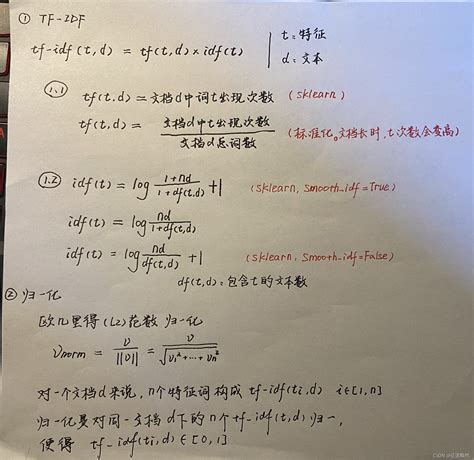 ① TF-IDF
tf-idf(t,d) = tf(t,d) × idf(t)
t: 特征
d: 文本
1.1 tf(t,d) = 文档d中词t出现次数 (sklearn)
tf(t,d) = 文档d中t出现次数 / 文档d总词数 (标准化。文档长时,t次数会变高)
1.2 idf(t) = log (1+nd)/(1+df(t,d)) +1 (sklearn, smooth_idf=True)
idf(t) = log nd/(1+df(t,d))
idf(t) = log nd/df(t,d) +1 (sklearn, smooth_idf=False)
df(t,d): 包含t的文本数
② 归一化
欧几里得(L2)范数 归一化
Vnorm = v/||v|| = v/√(v₁²+⋯+vn²)
对一个文档d来说, n个特征词构成 tf-idf(ti,d) i∈[1,n]
归一化是对同一文档d下的n个tf-idf(t,d)归一,
使得 tf-idf(ti,d)∈[0,1]